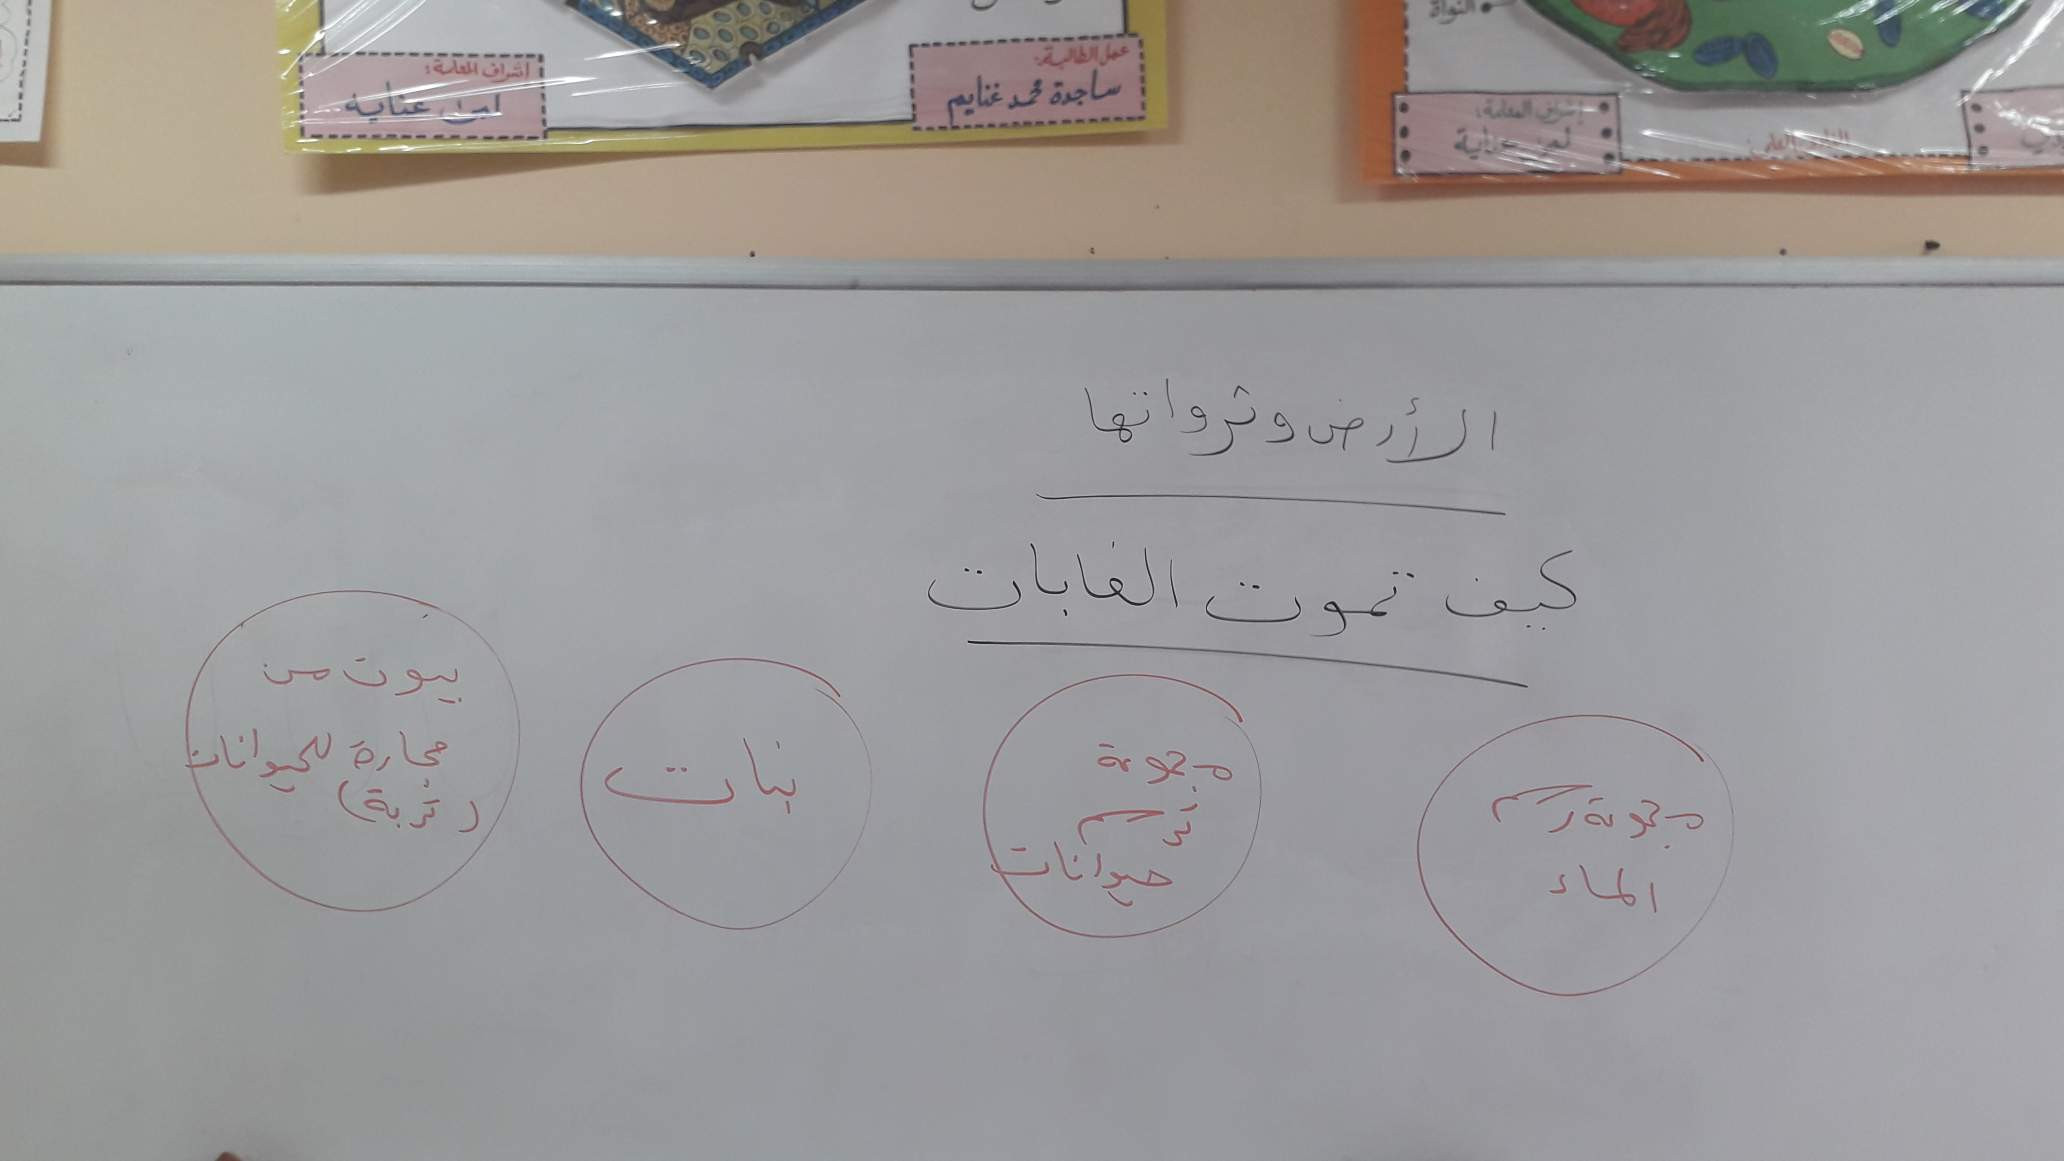 النواة
عمل الطالبة:
ساجدة محمد غنايم
إشراف المعلمة:
إشراف المعلمة:
الأرض وثرواتها
كيف تموت الغابات
مجموعة رسم
الماء
مجموعة
ترسم
حيوانات
نبات
بيوت من
حجارة للحيوانات
(تُربة)